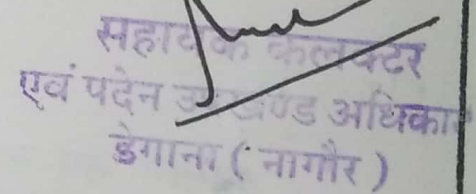 सहायक कलक्टर
एवं पदेन उपखण्ड अधिका
डेगाना ( नागौर )